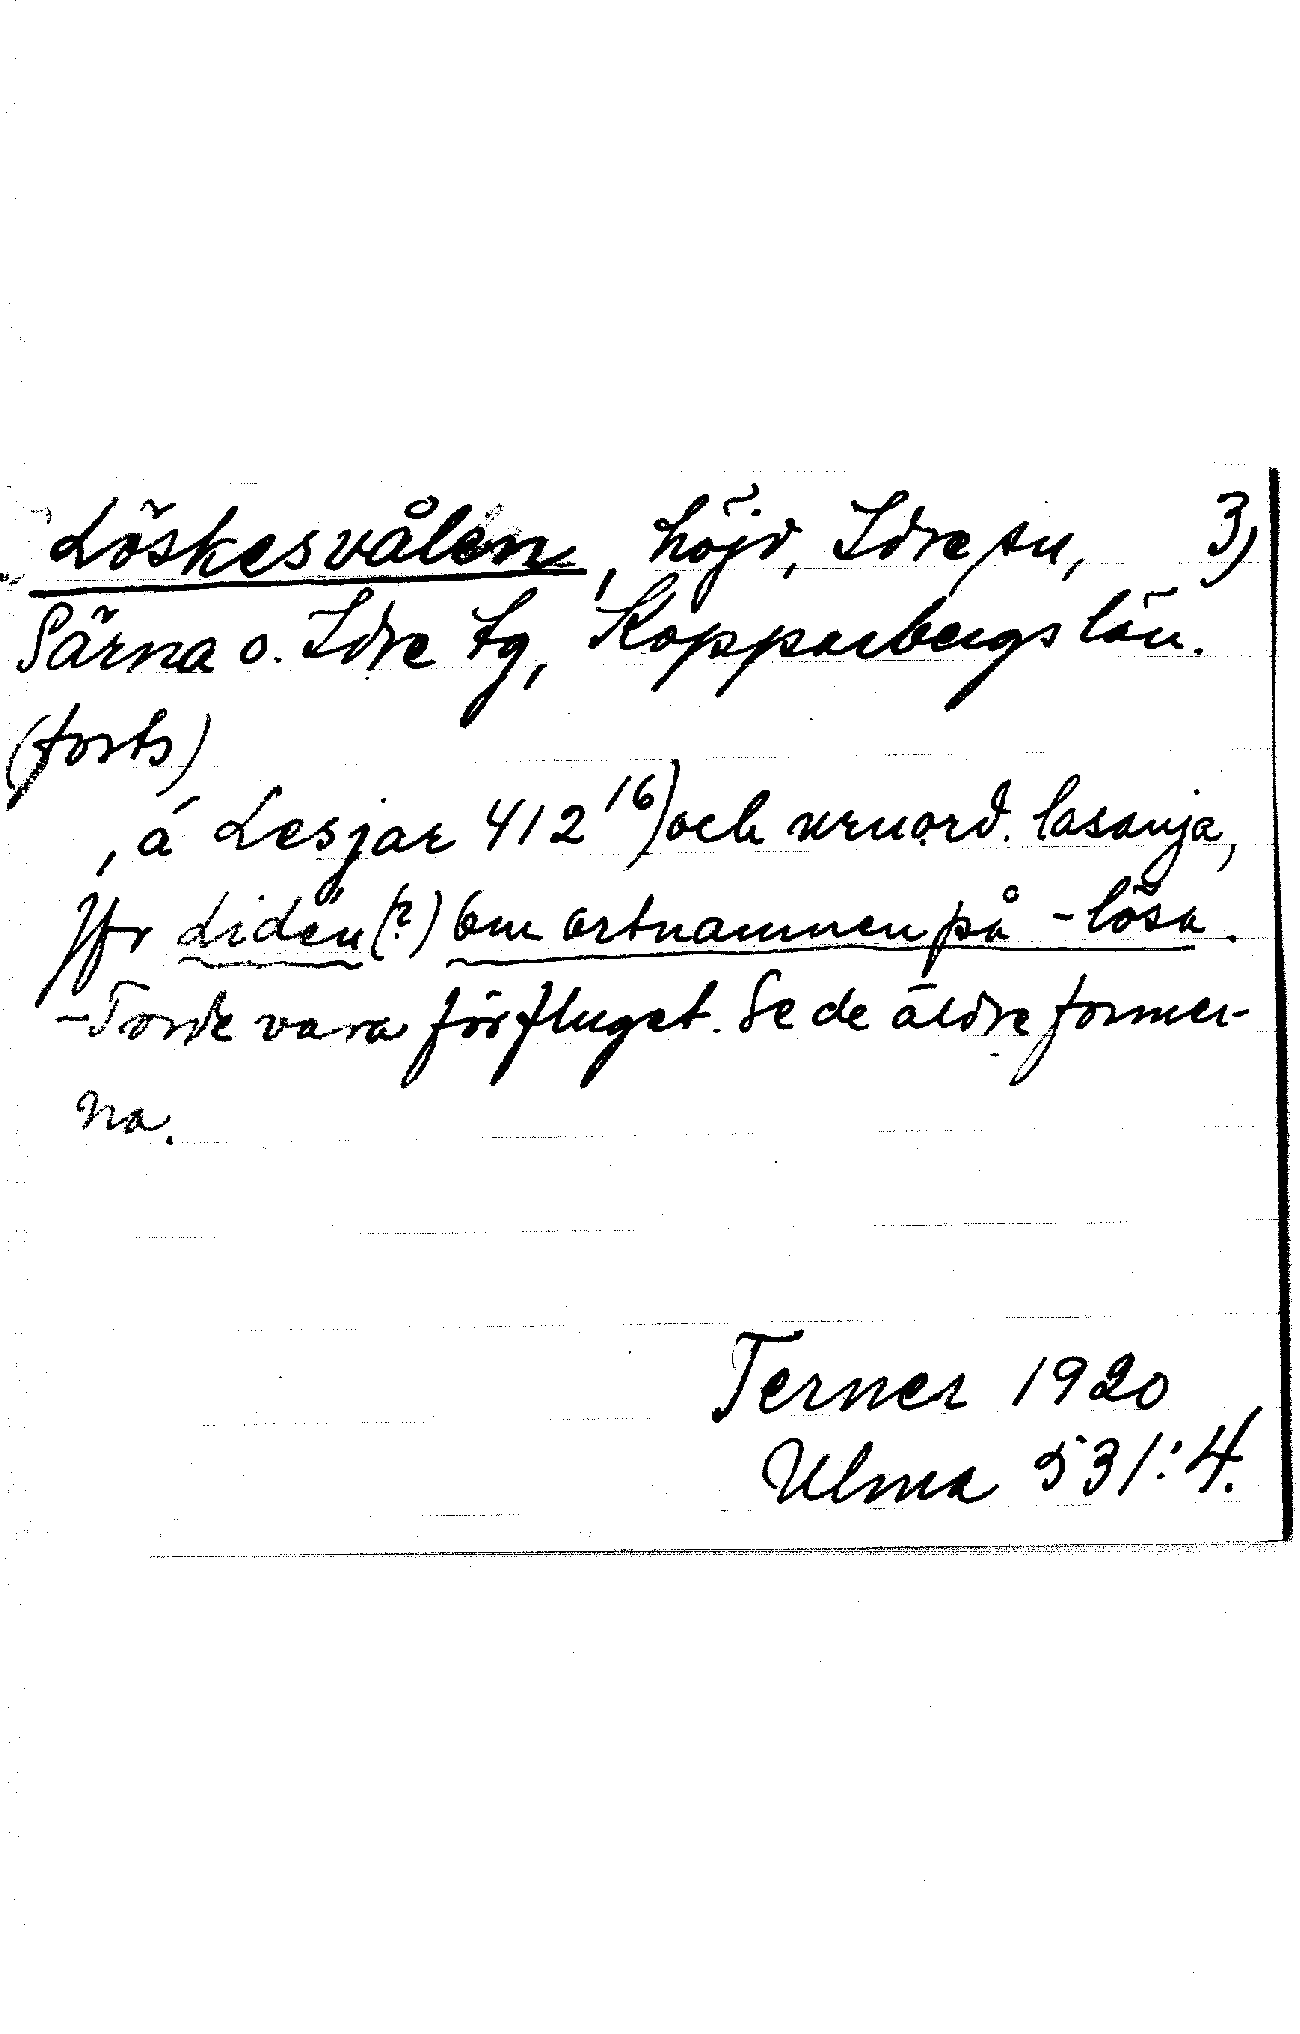 Löskesvålen, höjd, Idre sn, 3)
Särna o. Idre tg, Kopparbergs län.
(forts)
, á Lesjar 412 16) och urnord. lasanja,
Jfr Lidén (?) Om ortnamnen på -lösa.
- Torde vara förfluget. Se de äldre former-
na.
Terner 1920
Ulma 531:4.